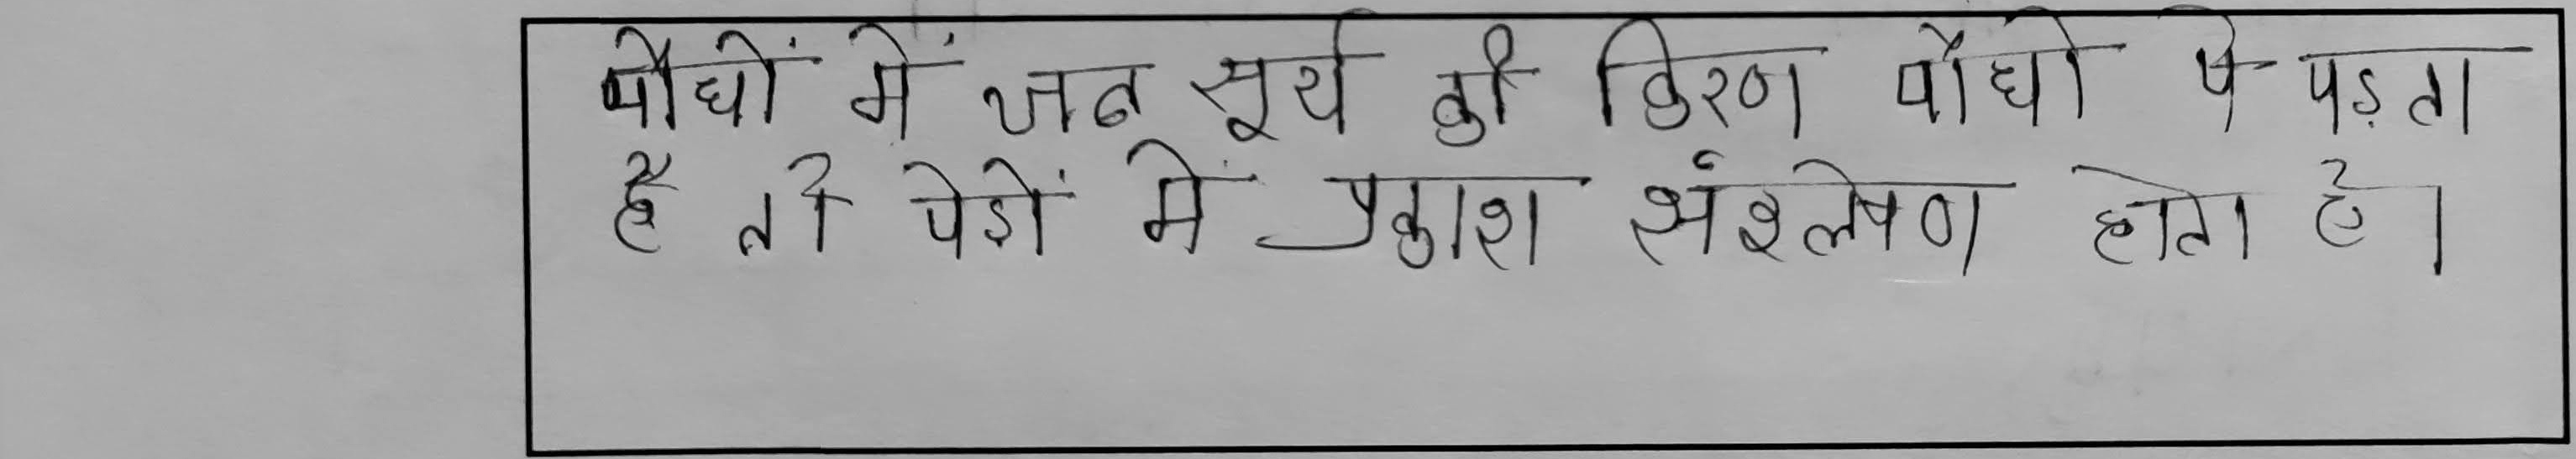 पौधों में जब सूर्य की किरण पौधो पे पड़ता
है तो पेडों में प्रकाश संश्लेषण होता है।